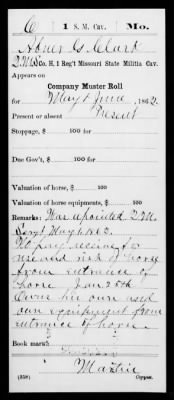 C 1 S. M. Cav. Mo.
Abner G. Clark
Q.M.S, Co. H, 1 Reg't Missouri State Militia Cav.
Appears on
Company Muster Roll
for May & June, 1862.
Present or absent Present
Stoppage, $ 100 for
Due Gov't, $ 100 for
Valuation of horse, $ 100
Valuation of horse equipments, $ 100
Remarks: Was apointed Q.M.
Sergt May 1, 1862.
No pay received for
use and risk of horse
from entrance of
horse Jan 25th
Owns his own used
own equipment from
entrance of horse.
Book mark:
Martin
(358) Copyist.